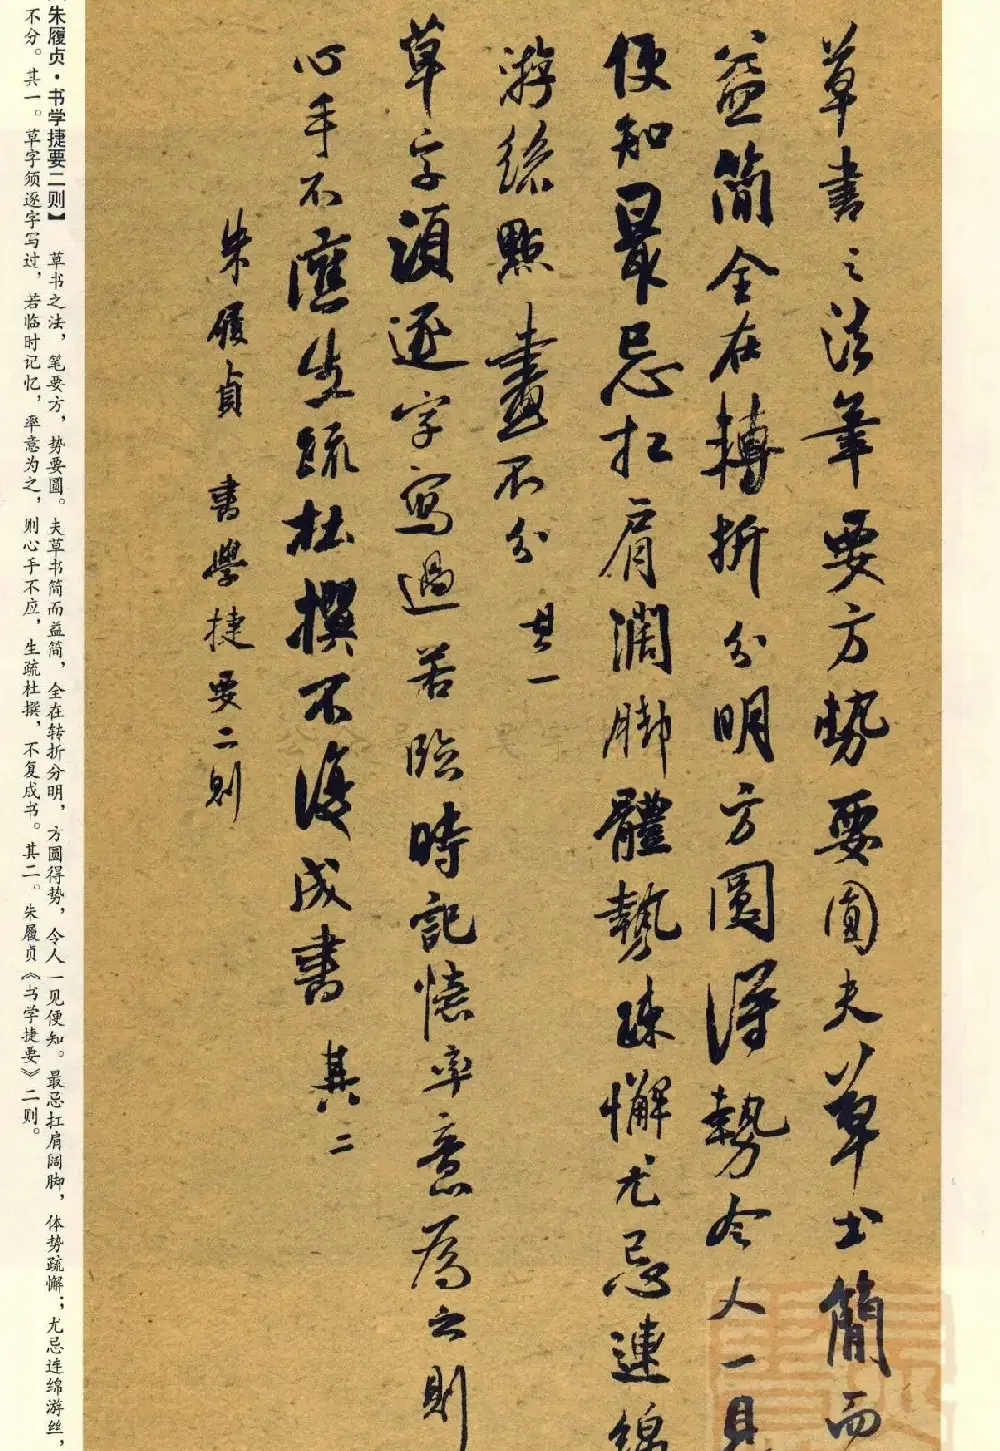 草書之法筆要方勢要圓夫草書簡而
益簡全在轉折分明方圓得勢令人一見
便知最忌扛肩濶脚體勢疎懈尤忌連綿
游絲點畫不分其一
草字須逐字寫過若臨時記憶率意為之則
心手不應生疏杜撰不復成書其二
朱履貞書學捷要二則
朱履贞·书学捷要二则】 草书之法，笔要方，势要圆。夫草书简而益简，全在转折分明，方圆得势，令人一见便知。最忌扛肩阔脚，体势疏懈；尤忌连绵游丝，
不分。其一。草字须逐字写过，若临时记忆，率意为之，则心手不应，生疏杜撰，不复成书。其二。朱履贞《书学捷要》二则。